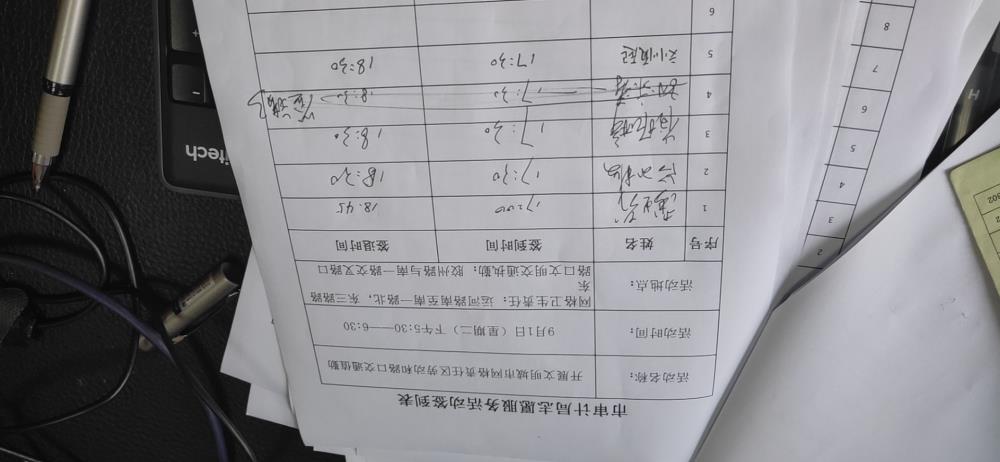 市审计局志愿服务活动签到表
活动名称： 开展文明城市网格责任区劳动和路口交通值勤
活动时间： 9月1日（星期二）下午5:30——6:30
活动地点： 网格卫生责任：运河路南至南一路北，东三路路东
路口文明交通执勤：胶州路与南一路交叉路口
序号 姓名 签到时间 签退时间
1 17:00 18:45
2 17:30 18:30
3 17:30 18:30
4 17:30 18:30
5 17:30 18:30
6
2
3
4
5
6
7
8
itech
H
302
2